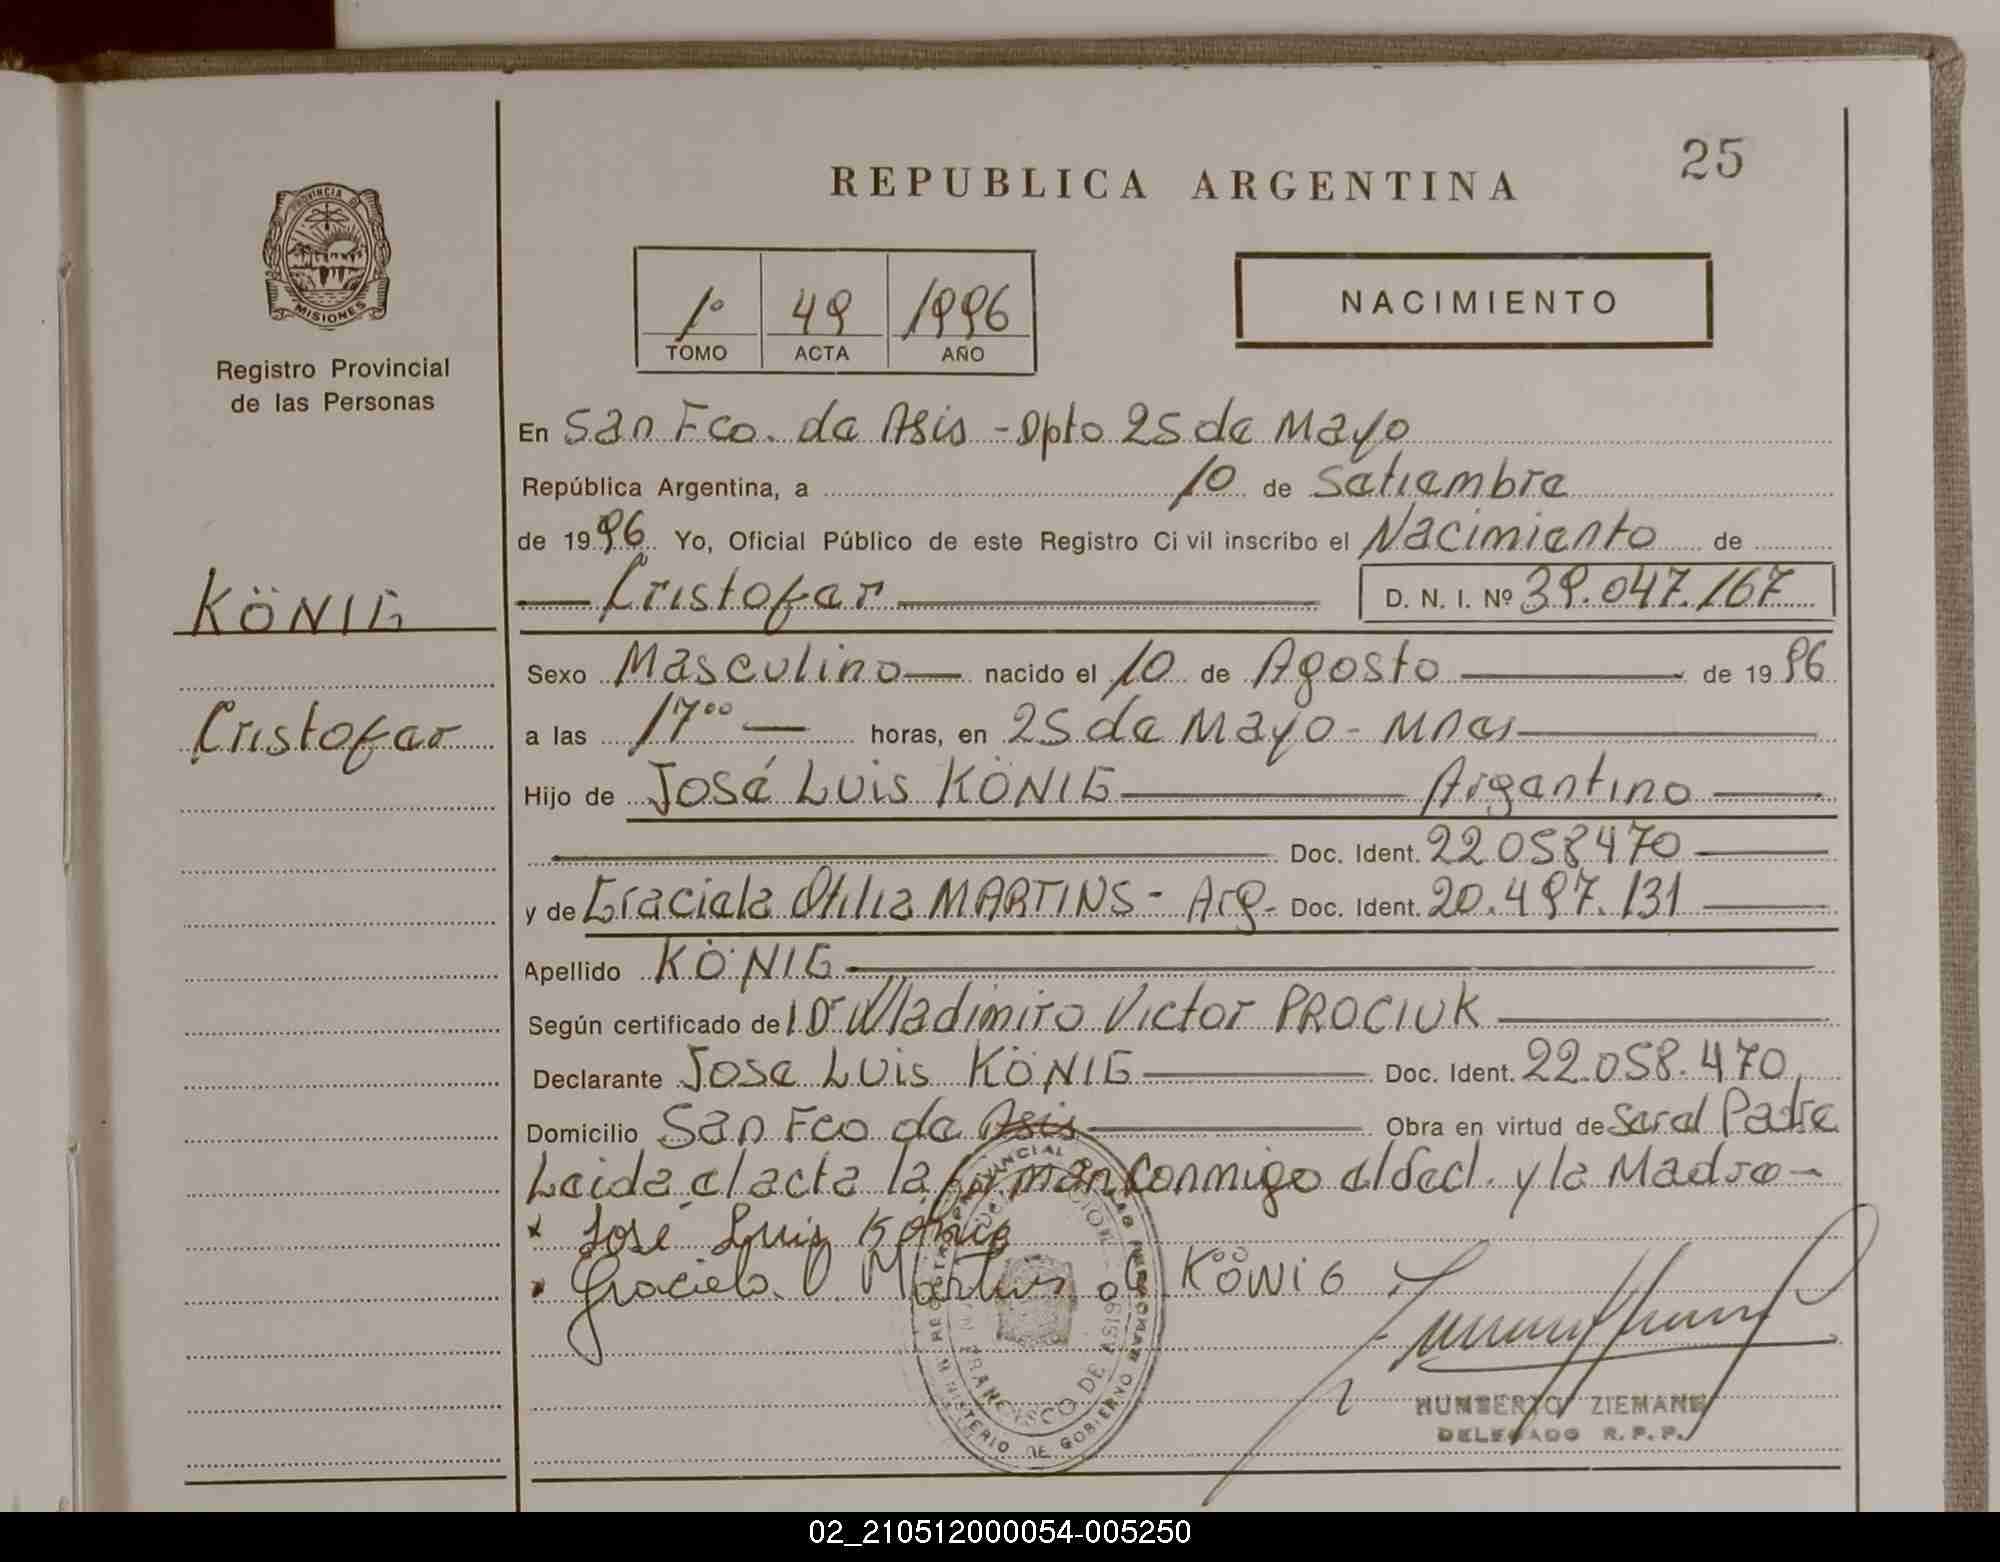 25
REPUBLICA ARGENTINA
PROVINCIA DE
MISIONES
Registro Provincial
de las Personas
1º 49 1996
TOMO ACTA AÑO
NACIMIENTO
En San Fco. de Asis - Dpto 25 de Mayo
República Argentina, a 10 de Setiembre
de 1996 Yo, Oficial Público de este Registro Civil inscribo el Nacimiento de
KÖNIG
Cristofer D. N. I. Nº 39.047.167
Sexo Masculino nacido el 10 de Agosto de 1996
Cristofer
a las 17⁰⁰ horas, en 25 de Mayo - Mnes
Hijo de José Luis KÖNIG Argentino
Doc. Ident. 22.058470
y de Graciela Otilia MARTINS - Arg. Doc. Ident. 20.497.131
Apellido KÖNIG
Según certificado de 1 Dr Wladimiro Victor PROCIUK
Declarante Jose Luis KÖNIG Doc. Ident. 22.058.470
Domicilio San Fco de Asis Obra en virtud de Ser el Padre
Leida el acta la firman conmigo el decl. y la Madre -
x José Luis König
Graciela O. Martins de KÖNIG
MINISTERIO DE GOBIERNO
SAN FRANCISCO DE ASIS
HUMBERTO ZIEMANN
DELEGADO R.P.P.
02_210512000054-005250